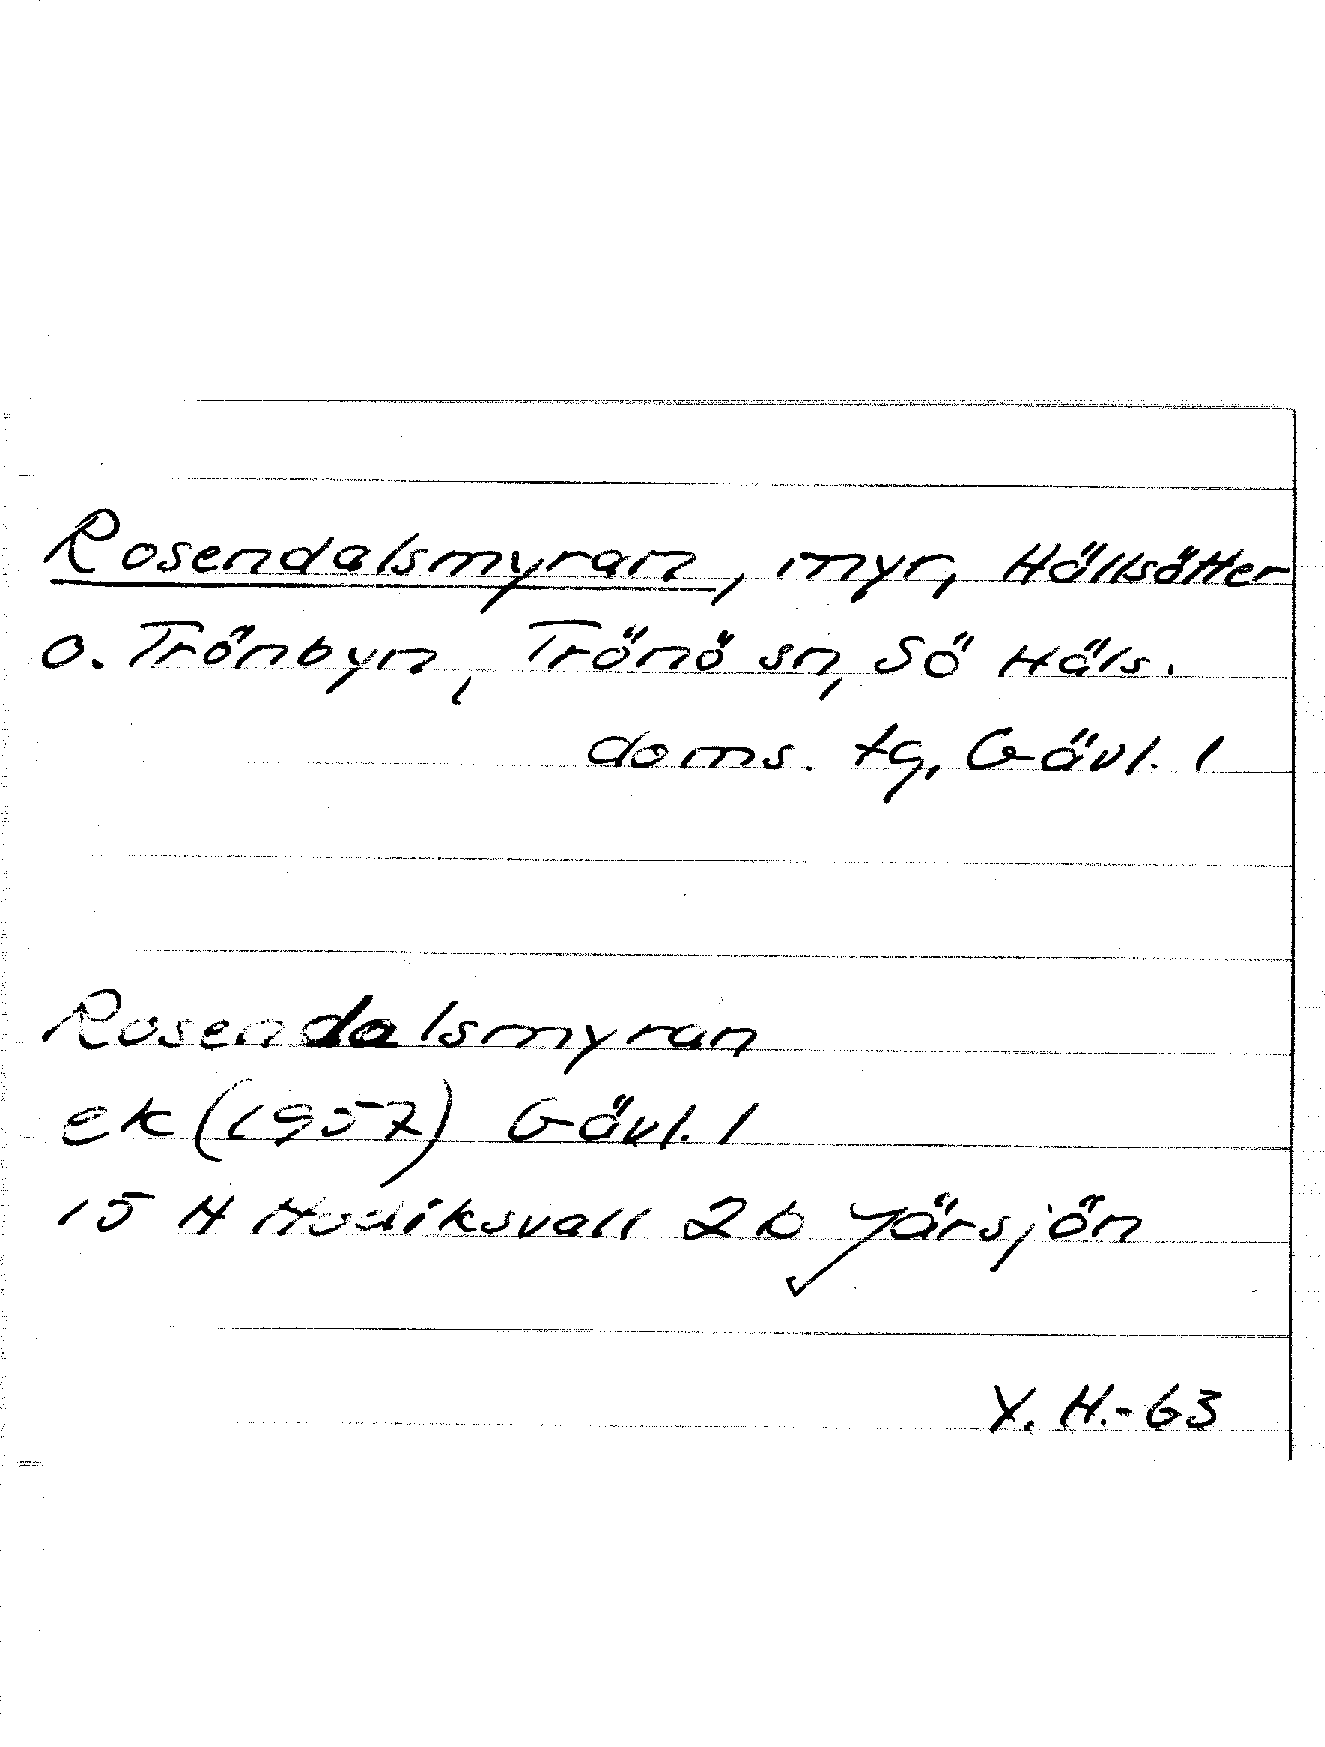 Rosendalsmyran, myr, Hällsätter
o. Trönbyn, Trönö sn, Sö Häls.
doms. tg, Gävl. l
Rosendalsmyran
ek (1957) Gävl. l
15 H Hudiksvall 2 b Yärsjön
Y. H.-63